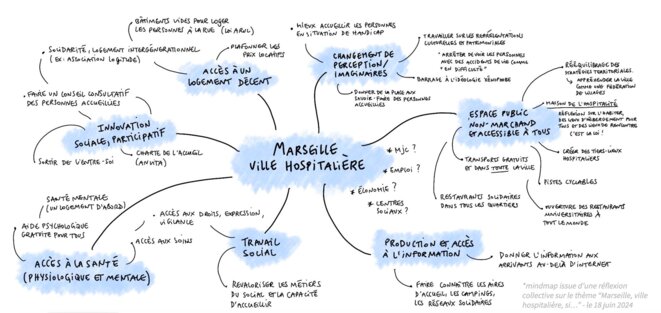 MARSEILLE
VILLE HOSPITALIÈRE
* MJC ?
* EMPLOI ?
* ÉCONOMIE ?
* CENTRES
SOCIAUX ?
ACCÈS À UN
LOGEMENT DÉCENT
BÂTIMENTS VIDES POUR LOGER
LES PERSONNES À LA RUE
PLAFONNER LES
PRIX LOCATIFS
INNOVATION
SOCIALE, PARTICIPATIF
• SOLIDARITÉ, LOGEMENT INTERGÉNÉRATIONNEL
(EX: ASSOCIATION LOGITUDE)
• FAIRE UN CONSEIL CONSULTATIF
DES PERSONNES ACCUEILLIES
SORTIR DE L'ENTRE-SOI
• CHARTE DE L'ACCUEIL
(ANVITA)
ACCÈS À LA SANTÉ
(PHYSIOLOGIQUE ET MENTALE)
SANTÉ MENTALE
(UN LOGEMENT D'ABORD)
• AIDE PSYCHOLOGIQUE
GRATUITE POUR TOUS
• ACCÈS AUX SOINS
TRAVAIL
SOCIAL
• ACCÈS AUX DROITS, EXPRESSION,
VIGILANCE
REVALORISER LES MÉTIERS
DU SOCIAL ET LA CAPACITÉ
D'ACCUEILLIR
PRODUCTION ET ACCÈS
À L'INFORMATION
FAIRE CONNAÎTRE LES AIRES
D'ACCUEIL, LES CAMPINGS,
LES RÉSEAUX SOLIDAIRES
DONNER L'INFORMATION AUX
ARRIVANTS AU-DELÀ D'INTERNET
CHANGEMENT DE
PERCEPTION/
IMAGINAIRES
• MIEUX ACCUEILLIR LES PERSONNES
EN SITUATION DE HANDICAP
• TRAVAILLER SUR LES REPRÉSENTATIONS
CULTURELLES ET PATRIMONIALES
• ARRÊTER DE VOIR LES PERSONNES
AVEC DES ACCIDENTS DE VIE COMME
"EN DIFFICULTÉ"
• BARRAGE À L'IDÉOLOGIE XÉNOPHOBE
• DONNER DE LA PLACE AUX
SAVOIR-FAIRE DES PERSONNES
ACCUEILLIES
ESPACE PUBLIC
NON-MARCHAND
ET ACCESSIBLE À TOUS
• RÉÉQUILIBRAGE DES
STRATÉGIES TERRITORIALES.
APPRÉHENDER LA VILLE
COMME UNE FÉDÉRATION
DE VILLAGES
MAISON DE L'HOSPITALITÉ
RÉFLEXION SUR L'HABITER,
DES LIEUX D'HÉBERGEMENT POUR
TOUS ET DES LIEUX DE RENCONTRE
C'EST LA LOI !
• CRÉER DES TIERS-LIEUX
HOSPITALIERS
• PISTES CYCLABLES
• OUVERTURE DES RESTAURANTS
UNIVERSITAIRES À
TOUT LE MONDE
• TRANSPORTS GRATUITS
ET DANS TOUTE LA VILLE
• RESTAURANTS SOLIDAIRES
DANS TOUS LES QUARTIERS
*mindmap issue d'une réflexion
collective sur le thème "Marseille, ville
hospitalière, si..." - le 18 juin 2024